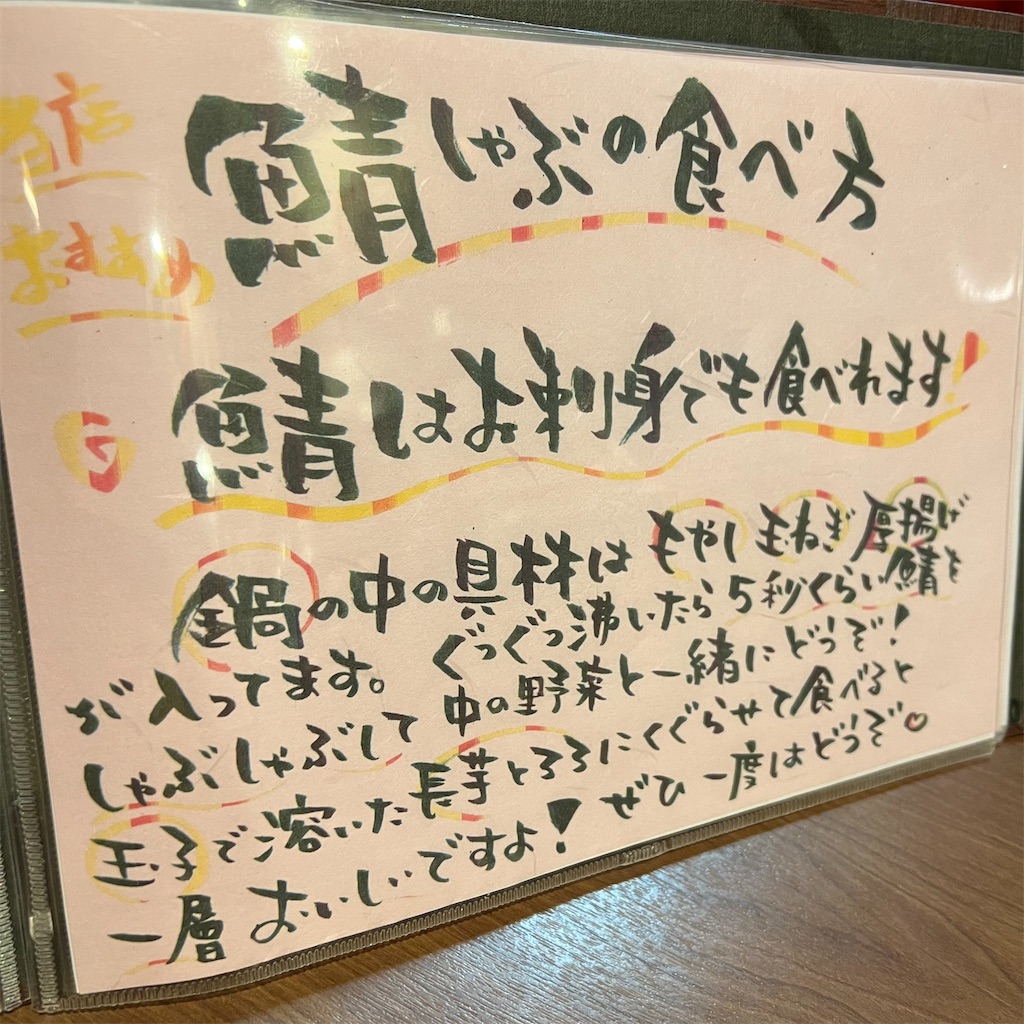 当店
おすすめ
鯖しゃぶの食べ方
鯖はお刺身でも食べれます!
鍋の中の具材は もやし 玉ねぎ 厚揚げ
が入ってます。 ぐつぐつ沸いたら5秒くらい鯖を
しゃぶしゃぶして 中の野菜と一緒にどうぞ!
玉子で溶いた長芋とろろにくぐらせて食べると
一層おいしいですよ! ぜひ一度はどうぞ♡